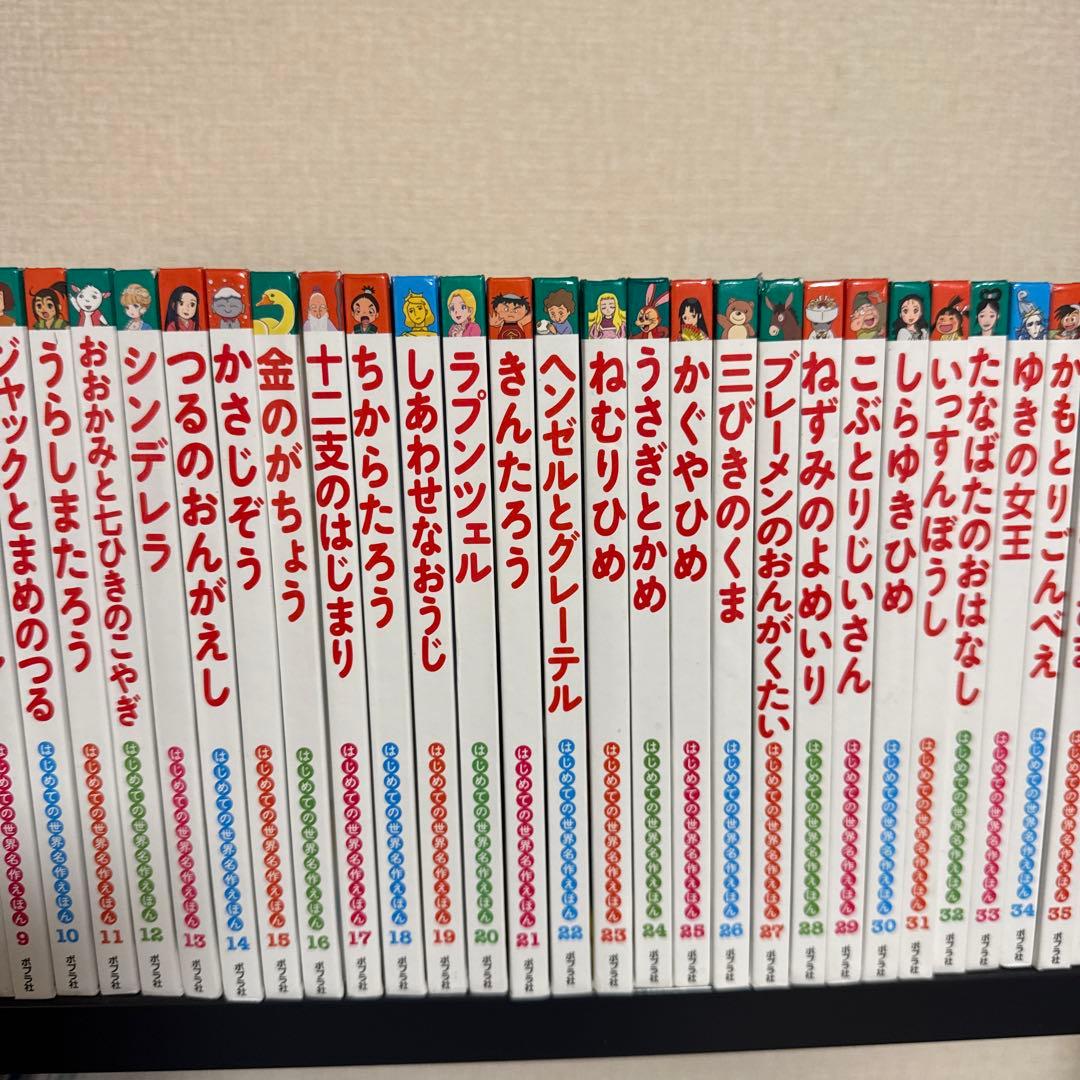 はじめての世界名作えほん 9 ポプラ社
ジャックとまめのつる はじめての世界名作えほん 10 ポプラ社
うらしまたろう はじめての世界名作えほん 11 ポプラ社
おおかみと七ひきのこやぎ はじめての世界名作えほん 12 ポプラ社
シンデレラ はじめての世界名作えほん 13 ポプラ社
つるのおんがえし はじめての世界名作えほん 14 ポプラ社
かさじぞう はじめての世界名作えほん 15 ポプラ社
金のがちょう はじめての世界名作えほん 16 ポプラ社
十二支のはじまり はじめての世界名作えほん 17 ポプラ社
ちからたろう はじめての世界名作えほん 18 ポプラ社
しあわせなおうじ はじめての世界名作えほん 19 ポプラ社
ラプンツェル はじめての世界名作えほん 20 ポプラ社
きんたろう はじめての世界名作えほん 21 ポプラ社
ヘンゼルとグレーテル はじめての世界名作えほん 22 ポプラ社
ねむりひめ はじめての世界名作えほん 23 ポプラ社
うさぎとかめ はじめての世界名作えほん 24 ポプラ社
かぐやひめ はじめての世界名作えほん 25 ポプラ社
三びきのくま はじめての世界名作えほん 26 ポプラ社
ブレーメンのおんがくたい はじめての世界名作えほん 27 ポプラ社
ねずみのよめいり はじめての世界名作えほん 28 ポプラ社
こぶとりじいさん はじめての世界名作えほん 29 ポプラ社
しらゆきひめ はじめての世界名作えほん 30 ポプラ社
いっすんぼうし はじめての世界名作えほん 31 ポプラ社
たなばたのおはなし はじめての世界名作えほん 32 ポプラ社
ゆきの女王 はじめての世界名作えほん 33 ポプラ社
かもとりごんべえ はじめての世界名作えほん 34 ポプラ社
はじめての世界名作えほん 35 ポプラ社